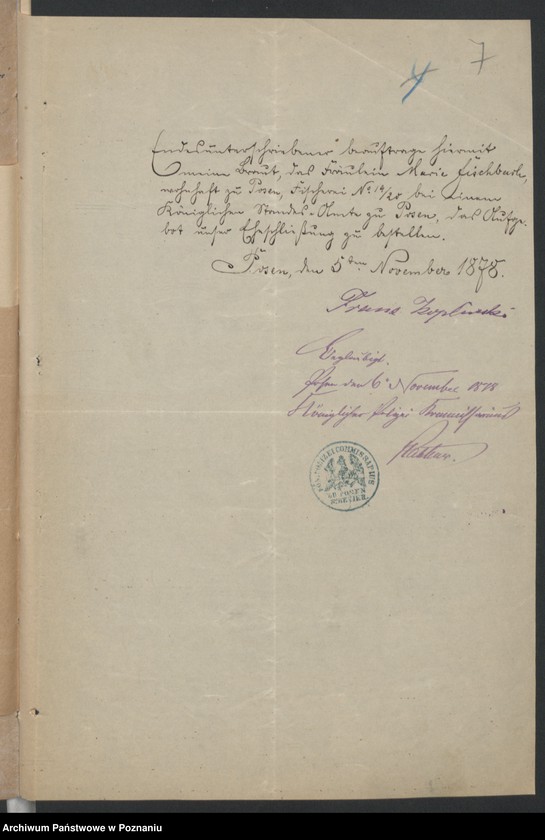 7
Endesunterschriebener beauftrage hiermit
meine Braut, das Fräulein Marie Fischbach,
wohnhaft zu Posen, Fischerei No 14/25 bei Einem
Königlichen Standes-Amte zu Posen, das Aufge-
bot unser Eheschließung zu bestellen.
Posen, den 5ten November 1878.
Franz
Beglaubigt.
Posen den 6. November 1878
Königlicher Polizei Kommissariat
KÖN. POLIZEI COMMISSARIUS
ZU POSEN
REVIER
Archiwum Państwowe w Poznaniu